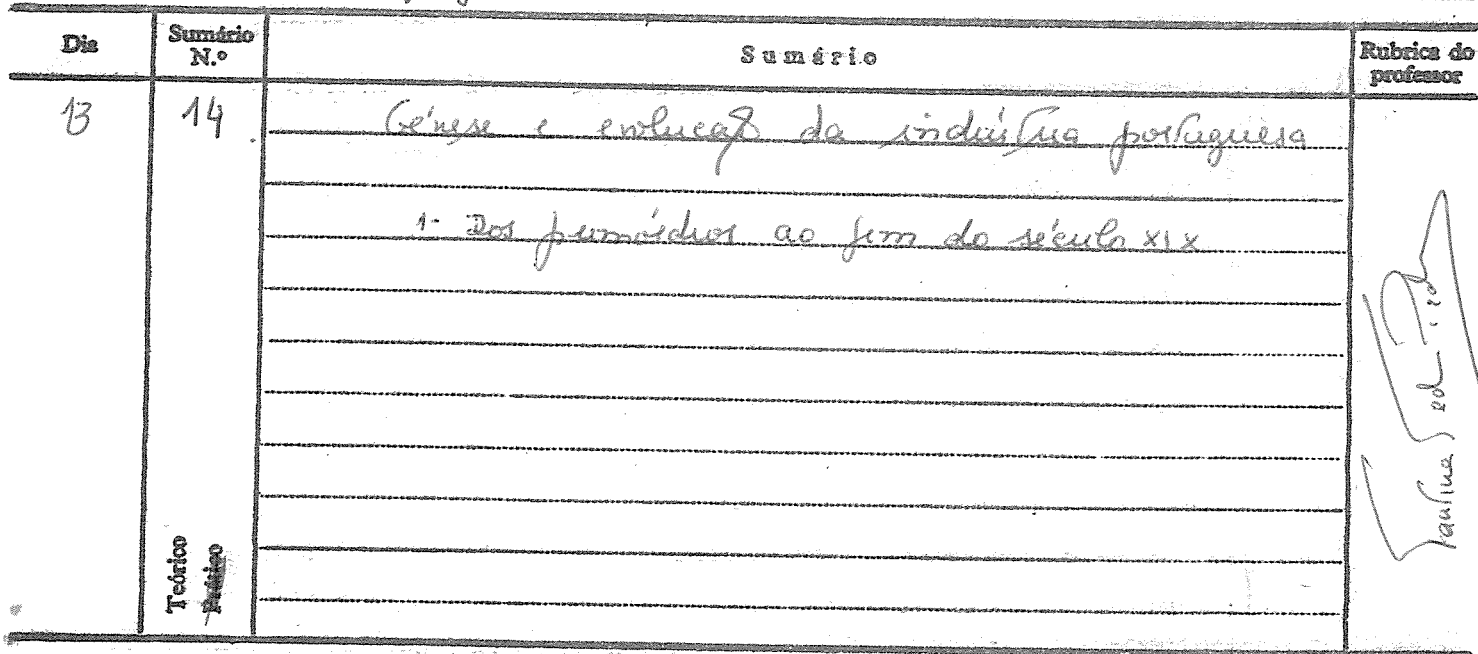 Dia
Sumário N.º
Sumário
Rubrica do professor
13
14
Génese e evolução da indústria portuguesa
1- Dos primórdios ao fim do século XIX
Teórico
Prático